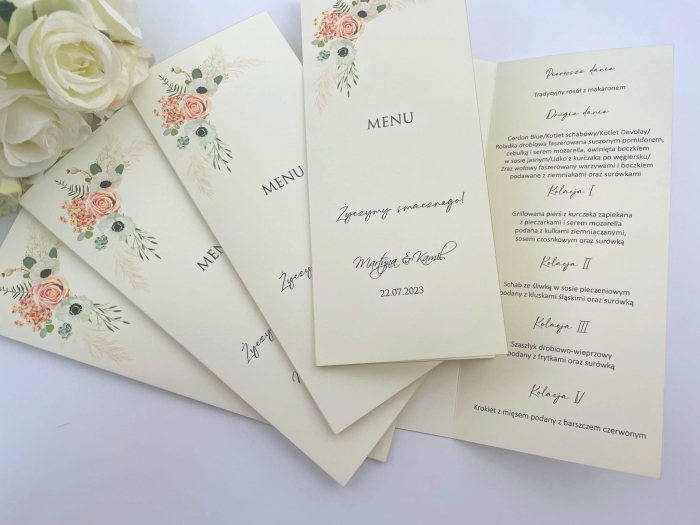 MENU
Życzymy smacznego!
Martyna & Kamil
22.07.2023
MENU
Życzy
MEN
Życzy
Pierwsze danie
Tradycyjny rosół z makaronem
Drugie danie
Cordon Blue/Kotlet schabowy/Kotlet Devolay/
Roladka drobiowa faszerowana suszonym pomidorem,
cebulką i serem mozarella, owinięta boczkiem
w sosie jasnym/Udko z kurczaka po węgiersku/
Zraz wołowy faszerowany warzywami i boczkiem
podawane z ziemniakami oraz surówkami
Kolacja I
Grillowana pierś z kurczaka zapiekana
z pieczarkami i serem mozarella
podana z kulkami ziemniaczanymi,
sosem czosnkowym oraz surówką
Kolacja II
Schab ze śliwką w sosie pieczeniowym
podany z kluskami śląskimi oraz surówką
Kolacja III
Szaszłyk drobiowo-wieprzowy
podany z frytkami oraz surówką
Kolacja IV
Krokiet z mięsem podany z barszczem czerwonym